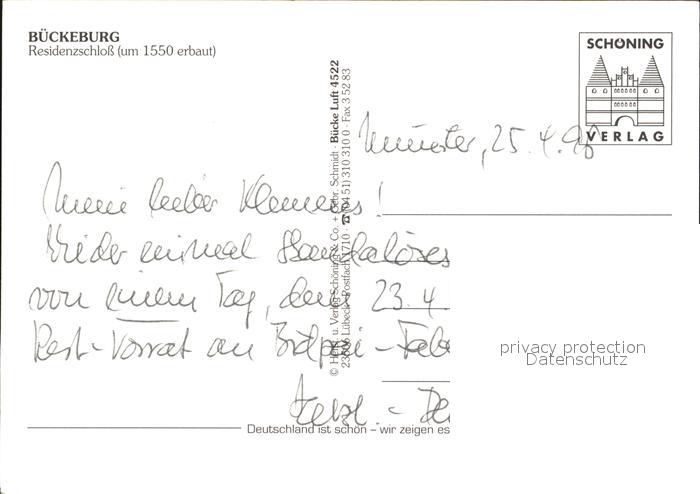 BÜCKEBURG
Residenzschloß (um 1550 erbaut)
SCHÖNING
VERLAG
© Her. u. Verlag Schöning & Co. + Gebr. Schmidt · Bücke Luft 4522
23506 Lübeck · Postfach 1710 · ☎ (04 51) 310 310 0 · Fax 3 52 83
Münster, 25.4.98
Mein lieber Klemens!
Wieder einmal Skandalöses
von einem Tag, dem 23.4
Rest-Vorrat an
Deutschland ist schön – wir zeigen es
privacy protection
Datenschutz